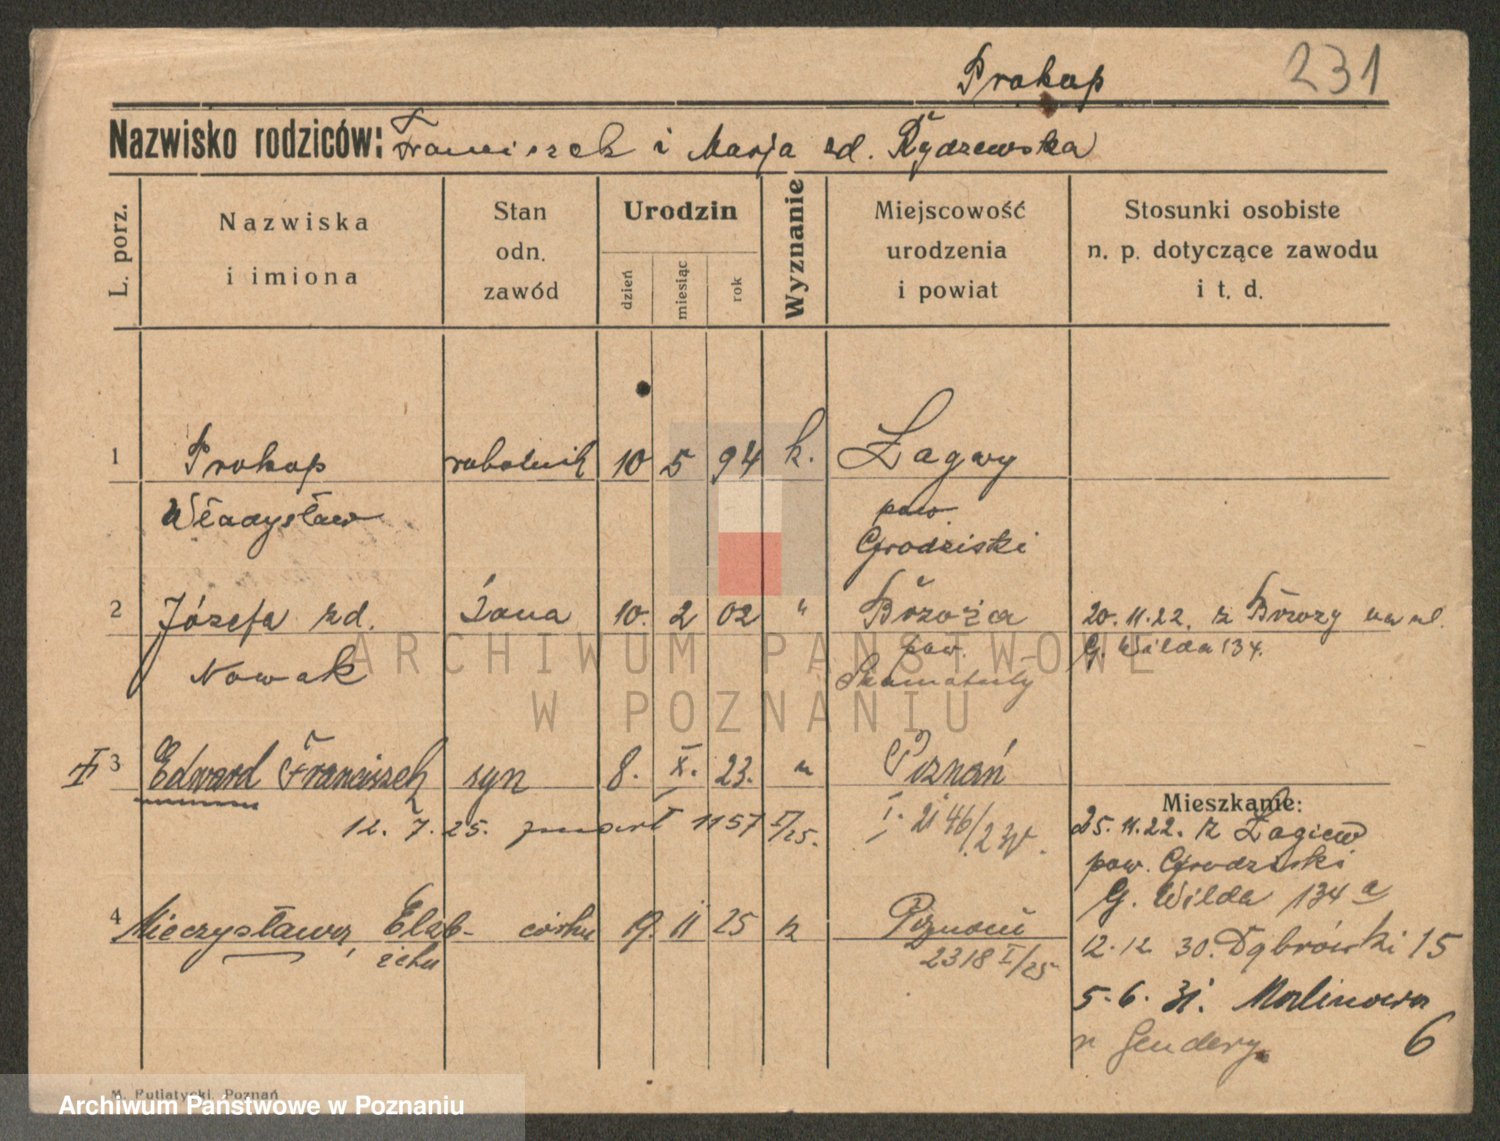 Prokop
231
Nazwisko rodziców: Franciszek i Marja zd. Rydzewska
L. porz.
Nazwiska
i imiona
Stan
odn.
zawód
Urodzin
dzień
miesiąc
rok
Wyznanie
Miejscowość
urodzenia
i powiat
Stosunki osobiste
n. p. dotyczące zawodu
i t. d.
1 Prokop robotnik 10 5 94 k. Łagwy
Władysław pow
Grodziski
2 Józefa zd. żona 10. 2 02 " 20.11.22. z na ul.
Nowak pow. G. Wilda 134.
Szamotuły
3 Edward Franciszek syn 8. X. 23. " Poznań
12. 7. 25. zmarł 1157 I/25. I. 46/23
Mieszkanie:
25.11.22. z
pow. Grodziski
G. Wilda 134 a
4 Mieczysława, Elż- córka 19. 11 25 k Poznań
bieta 2318 I/25
12.12 30. Dąbrówki 15
5.6.31. Malinowa
6
ARCHIWUM PAŃSTWOWE
W POZNANIU
M. Putiatycki, Poznań
Archiwum Państwowe w Poznaniu